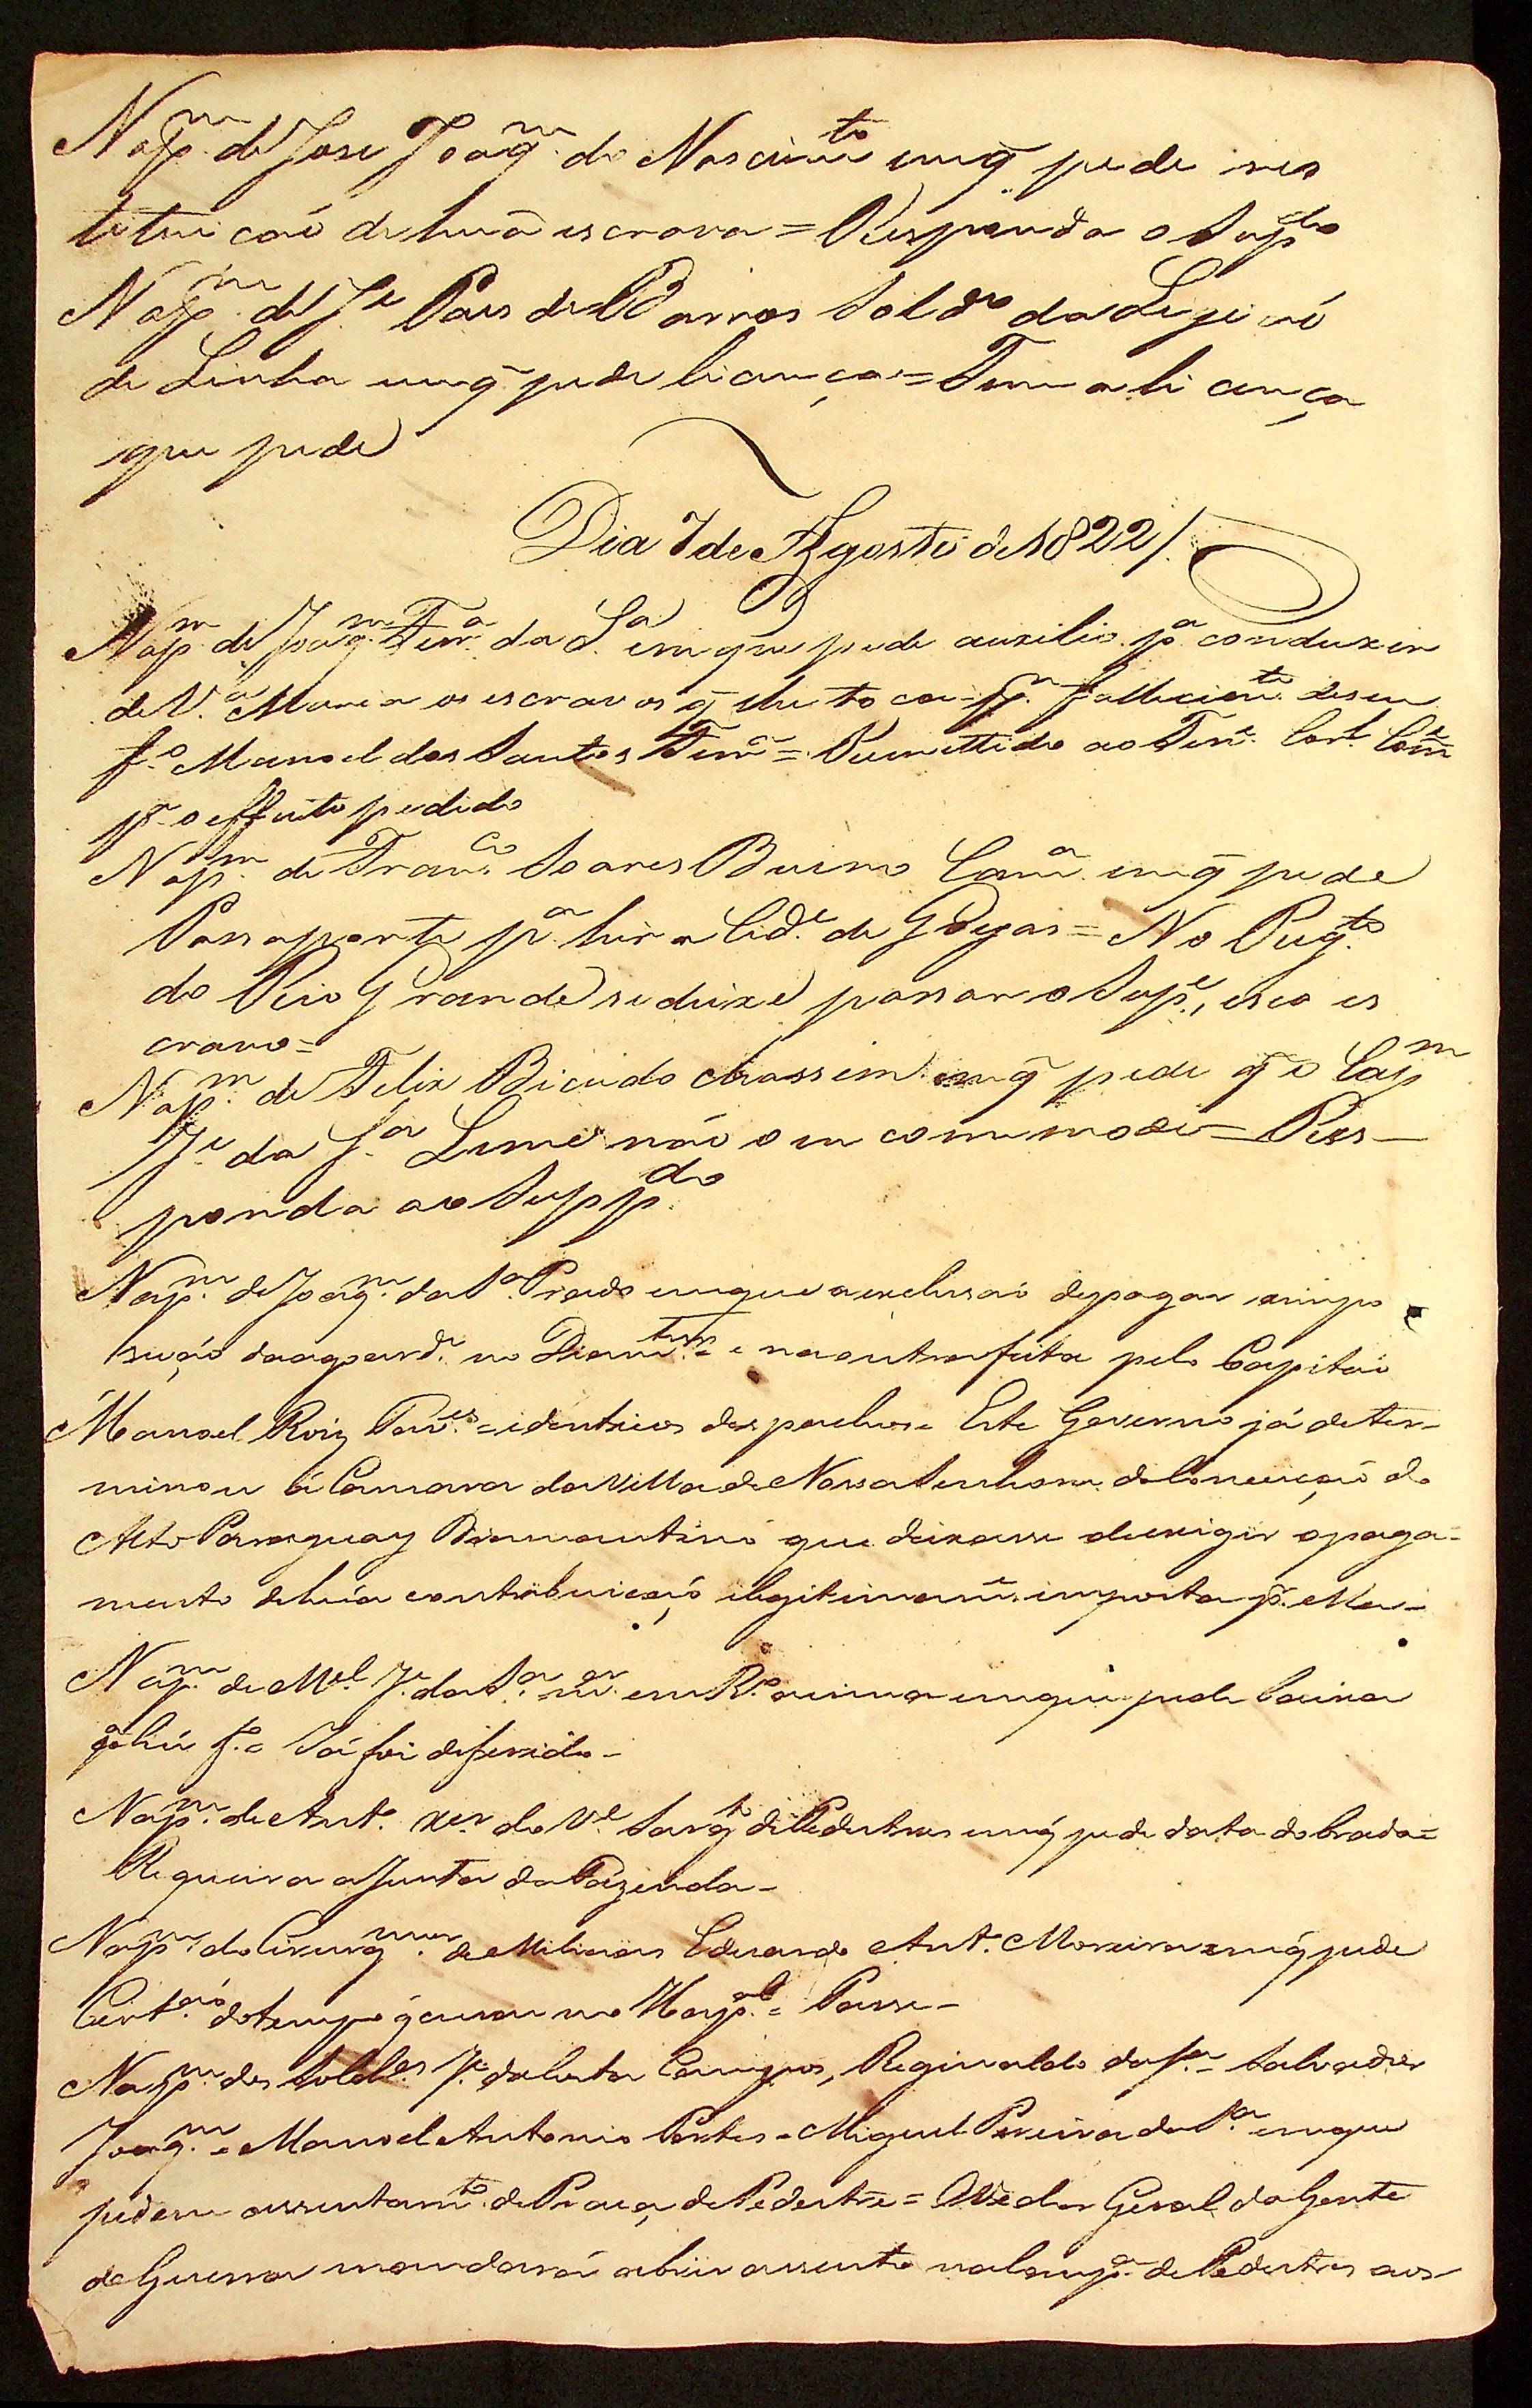 Na p.m de Jose Joaq.m do Nascim.to em q̃ pede res
tituicaõ de huã escrava = Responda o Sup.do
Na p.m de J.e Paes de Barros Sold.o da Legiaõ
de Linha em q̃ pede licença = Tem a licença
que pede
Dia 7 de Agosto de 1822/.
Na p.m de Joaq.m Ferr.a da S.a em que pede auxilio p.a conduzir
de V.a Maria os escravos q̃ lhe toca p.r fallecim.to de seu
f.o Manoel dos Santos Ferr.a = Remettido ao Ten.e Cor.l Com.e
p.a o effeito pedido
Na p.m de Fran.co Soares Bueno em q̃ pede
Passaporte p.a hir a Cid.e de Goyas = No Reg.to
do Rio Grande se deixe passar o Sup.e, e seo es
cravo =
Na p.m de Felix Bicudo em q̃ pede q̃ o Cap.m
J.e da S.a Leme não o in commode = Res-
ponda ao Supp.do
Na p.m de Joaq.m da S.a Prado em que a excluzaõ de pagar a impo
siçaõ da agoard.e no Diam.tino = e na outra feita pelo Capitaõ
Manoel Roiz Tav.es = identicos despachos = Este Governo já deter-
minou á Camara da Villa de Nossa Senhora da Conceiçaõ do
Alto Paraguay Diamantino que deixasse de exigir o paga-
mento de húa contribuiçaõ illegitimam.e imposta p.r Ella -
Na p.m de M.el J.e da S.a em R.o acima em que pede baixa
p.a hú f.o = Já foi deferido -
Na p.m de Ant.o X.er do V.e Sarg.to de Pedestres em q̃ pede data de
Requeira a Junta da Fazenda -
Na p.m do Cirurg.m mor de Milicias Eduardo Ant.o Moreira em q̃ pede
Cert.aõ do tempo q̃ no Hosp.al = Passe -
Na p.m dos Sold.os J.e da Costa Campos, Reginaldo da S.a = Salvador
Joaq.m = Manoel Antonio Pontes = Miguel Pereira da S.a em que
pedem assentam.to de Praça de Pedestre = O Vedor Geral da Gente
de Guerra mandará abrir assento na Comp.a de Pedestres aos